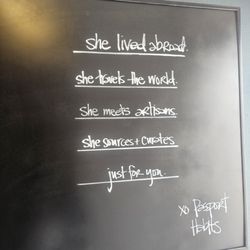 she lived abroad.
she travels the world.
she meets artisans
she sources + curates
just for you.
xo Passport
Habits